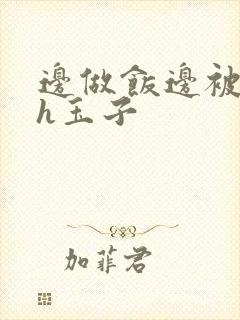 邊做飯邊被
h玉子
加菲君